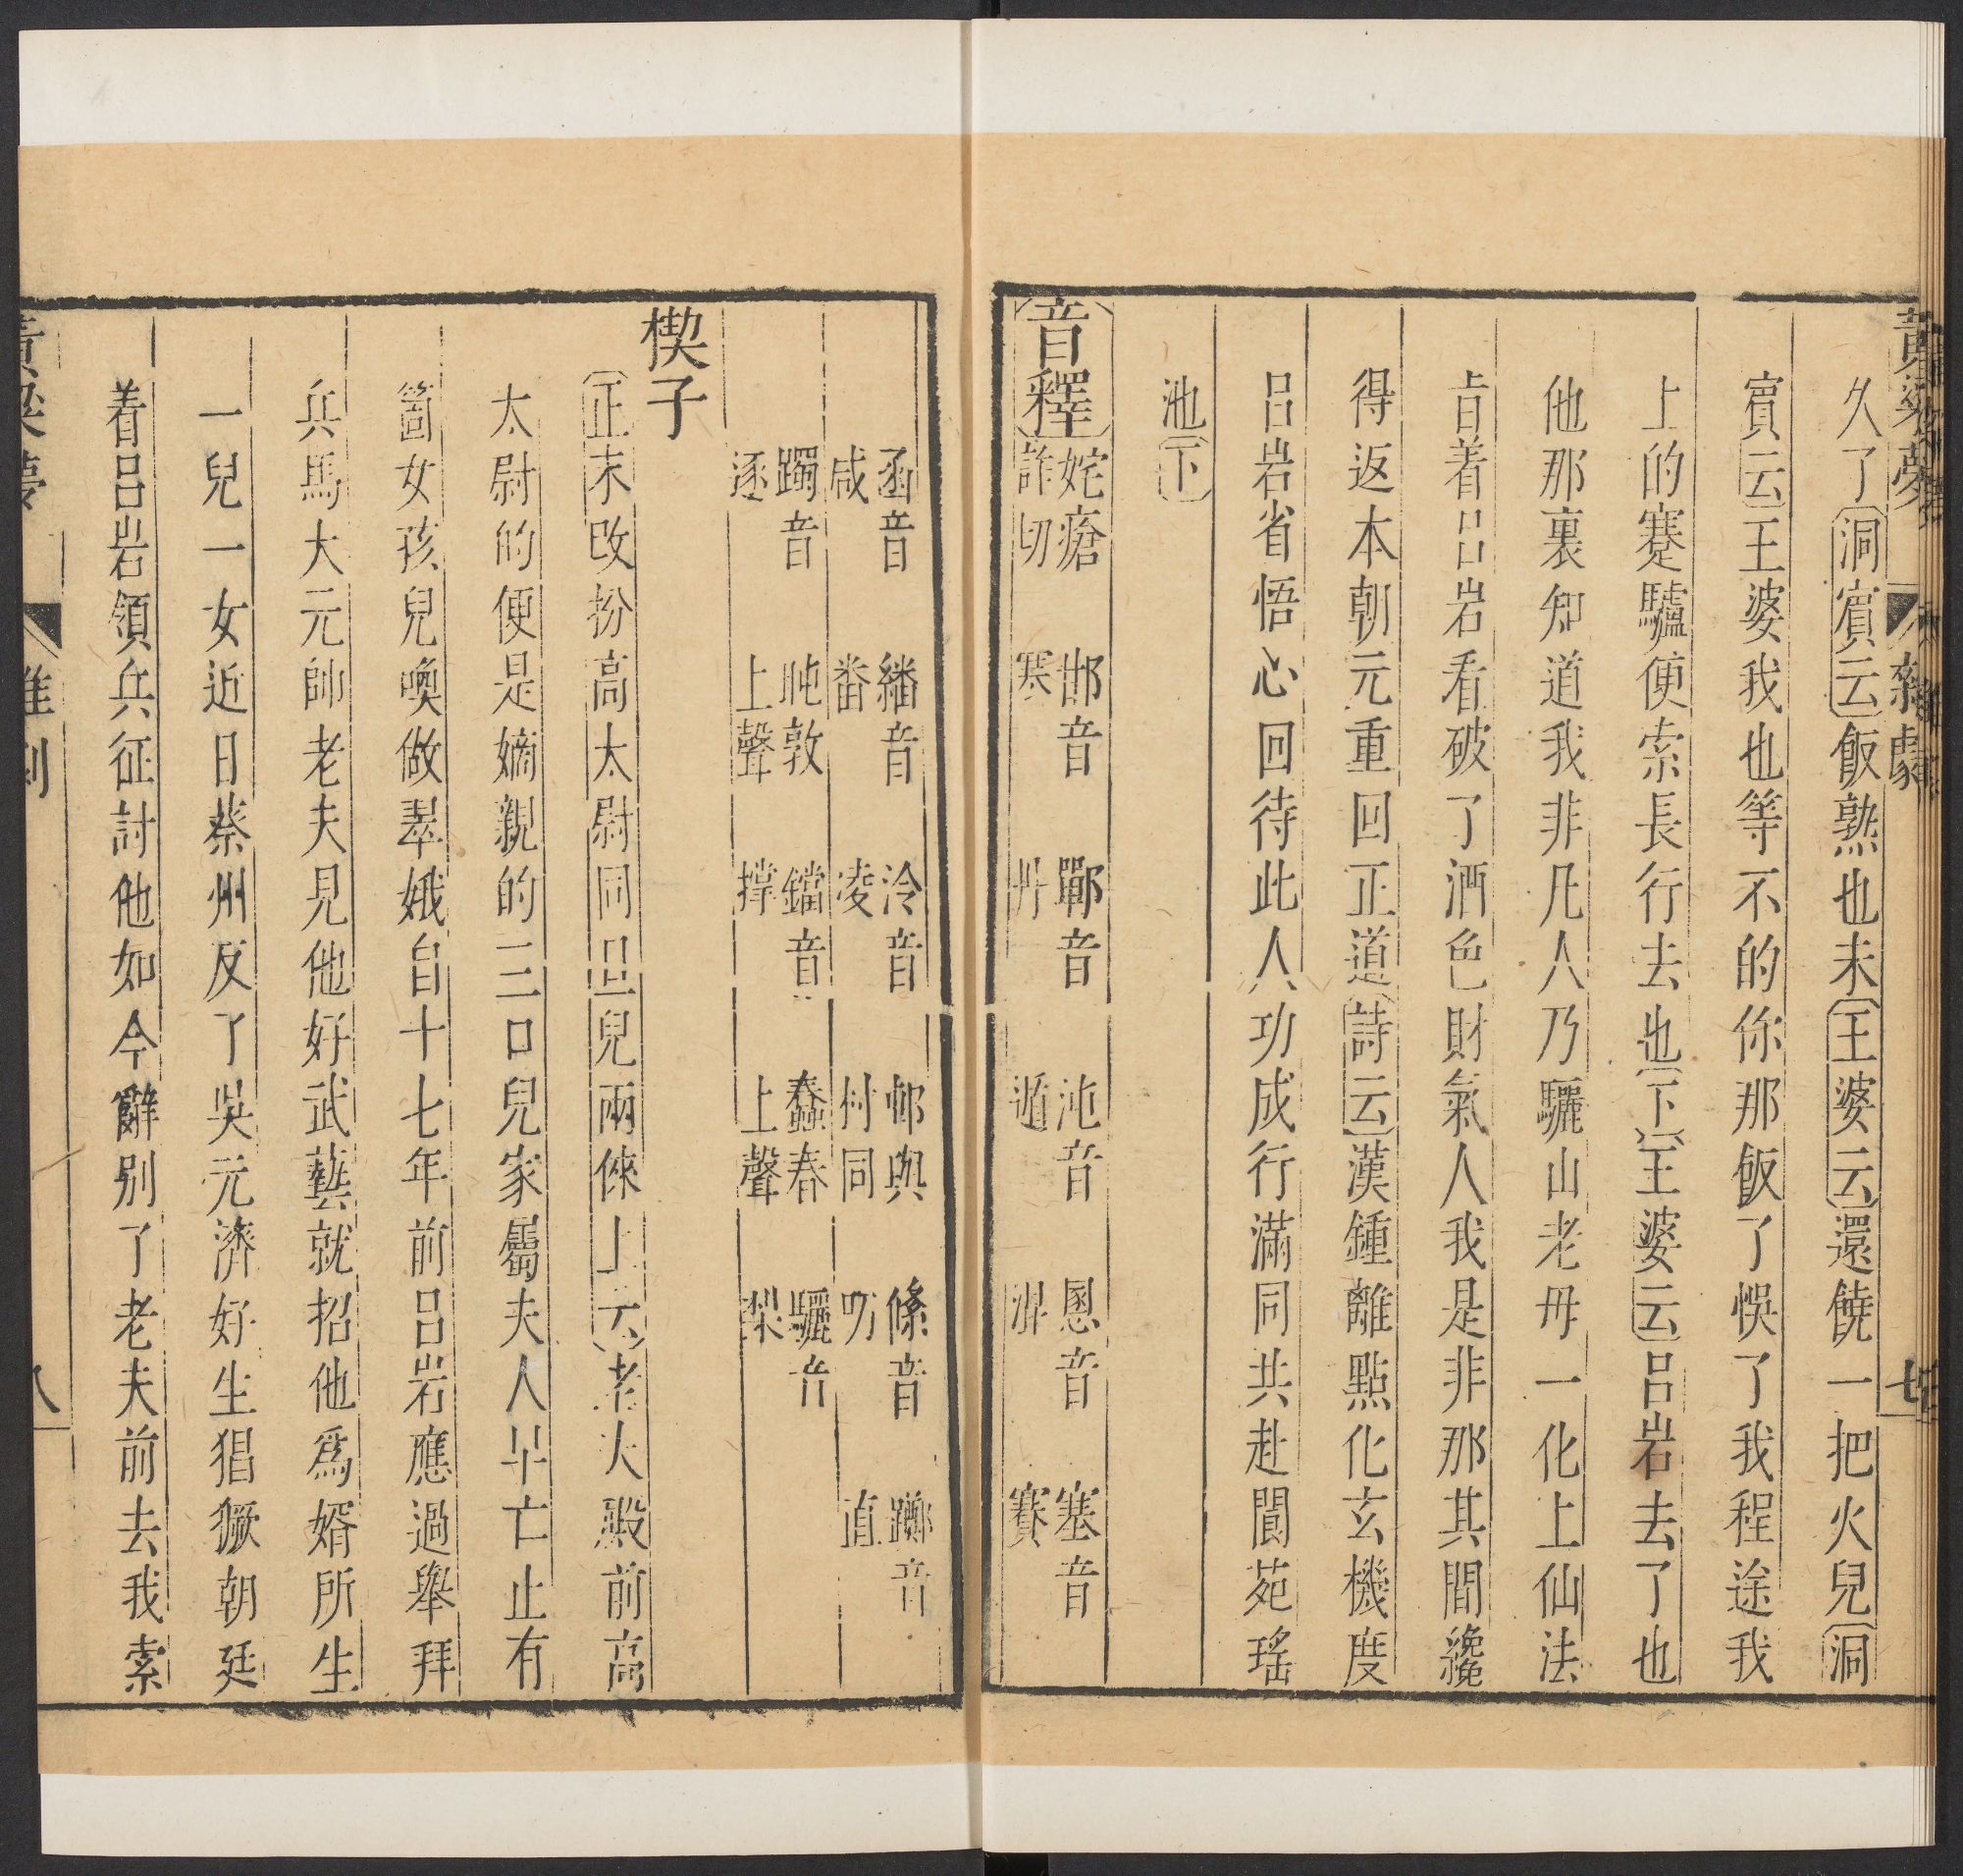 黃粱夢 雜劇 七
久了〔洞賔云〕飯熟也未〔王婆云〕還饒一把火兒〔洞
賔云〕王婆我也等不的你那飯了悞了我程途我
上的蹇驢便索長行去也〔下〕〔王婆云〕呂岩去了也
他那裏知道我非凡人乃驪山老母一化上仙法
旨着呂岩看破了酒色財氣人我是非那其間纔
得返本朝元重回正道〔詩云〕漢鍾離點化玄機度
呂岩省悟心回待此人功成行滿同共赴閬苑瑤
池〔下〕
〔音釋〕 姹瘡詐切 邯音寒 鄲音丹 沌音遁 慁音渾 塞音賽
函音咸 繙音番 泠音凌 邨與村同 絛音叨 躑音直
躅音逐 盹敦上聲 鐺音撑 蠢春上聲 驪音梨
楔子
〔正末改扮高太尉同旦兒兩倈上云〕老夫殿前高
太尉的便是嫡親的三口兒家屬夫人早亡止有
箇女孩兒喚做翠娥自十七年前呂岩應過舉拜
兵馬大元帥老夫見他好武藝就招他爲婿所生
一兒一女近日蔡州反了吳元濟好生猖獗朝廷
着呂岩領兵征討他如今辭别了老夫前去我索
黃粱夢 雜劇 八